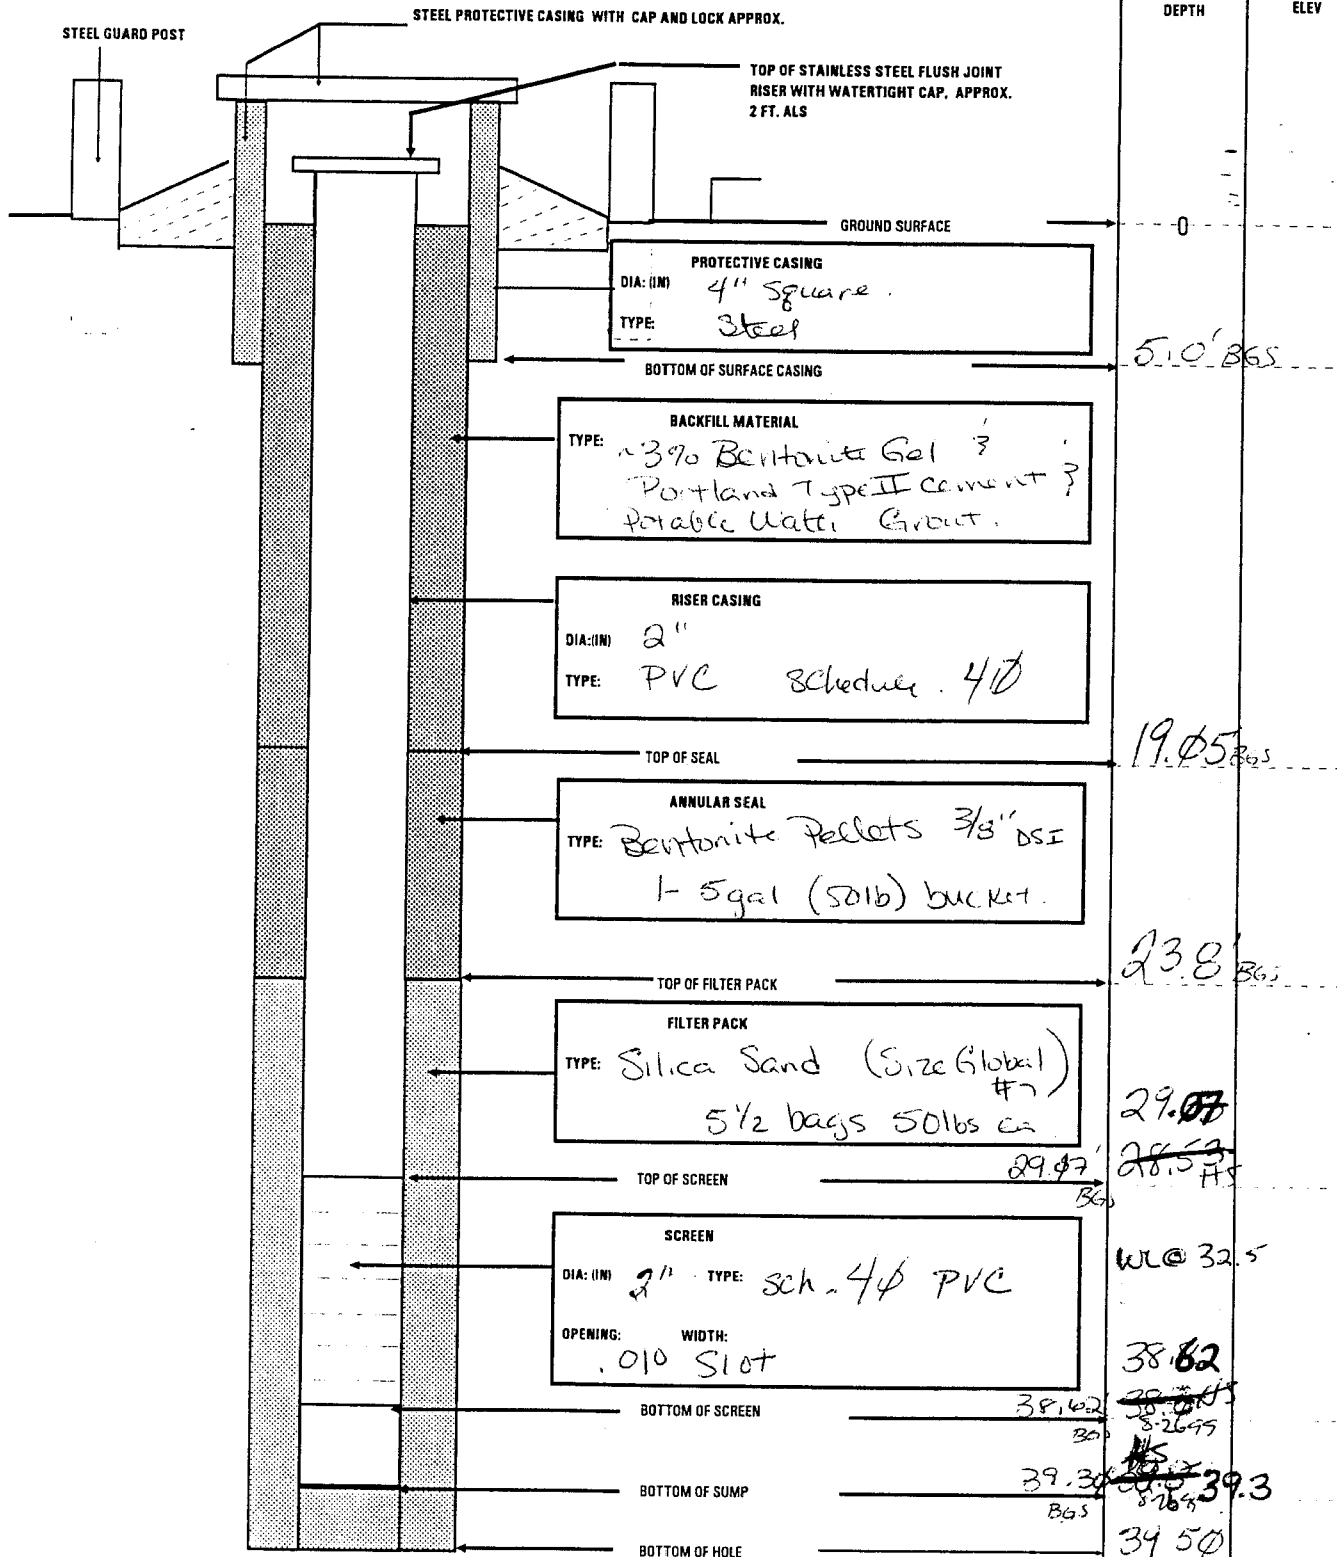 STEEL PROTECTIVE CASING WITH CAP AND LOCK APPROX.
DEPTH
ELEV
STEEL GUARD POST
TOP OF STAINLESS STEEL FLUSH JOINT
RISER WITH WATERTIGHT CAP, APPROX.
2 FT. ALS
GROUND SURFACE
0
PROTECTIVE CASING
DIA: (IN) 4" Square.
TYPE: Steel
BOTTOM OF SURFACE CASING
5.0' BGS
BACKFILL MATERIAL
TYPE: ~3% Bentonite Gel &
Portland Type II cement &
Potable Water Grout.
RISER CASING
DIA:(IN) 2"
TYPE: PVC Schedule. 4Ø
TOP OF SEAL
19.Ø5' BGS
ANNULAR SEAL
TYPE: Bentonite Pellets 3/8" DSI
1- 5gal (50lb) bucket.
TOP OF FILTER PACK
23.8' BGS
FILTER PACK
TYPE: Silica Sand (Size Global
#7)
5 1/2 bags 50lbs ea
29.07
28.53
HS
TOP OF SCREEN
29.Ø7'
BGS
SCREEN
WL@ 32.5
DIA: (IN) 2" TYPE: Sch. 4Ø PVC
OPENING: WIDTH:
.010 Slot
38.62
BOTTOM OF SCREEN
38.62'
BGS
HS
8-26-99
BOTTOM OF SUMP
39.3Ø
BGS
HS
39.3
BOTTOM OF HOLE
39 5Ø